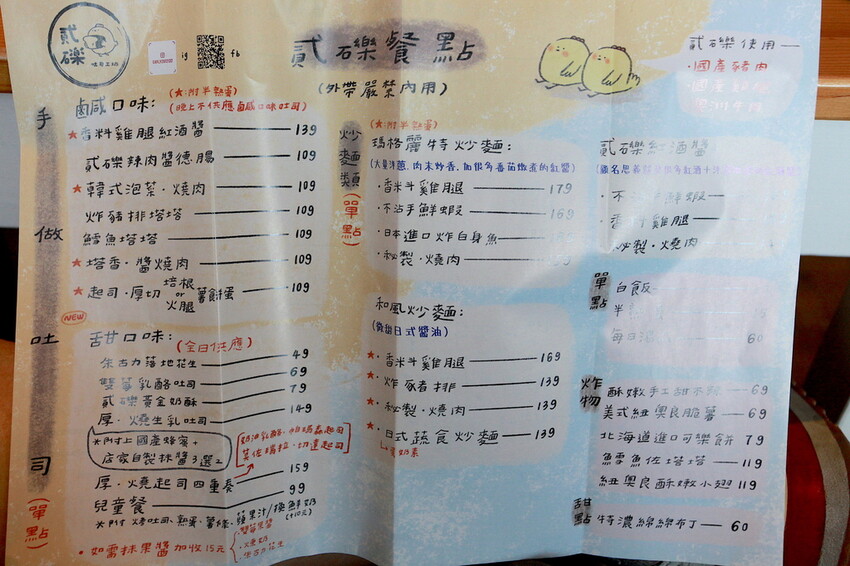 貳礫
ig
fb
貳礫餐點
(外帶嚴禁內用)
貳礫使用
・國產豬肉
手做吐司(單點)
鹵咸口味:
(★:附半熟蛋)
(晚上不供應鹵咸口味吐司)
★香料雞腿紅酒醬 139
貳礫辣肉醬德腸 109
★韓式泡菜・燒肉 109
炸豬排塔塔 109
鱈魚塔塔 109
★塔香・醬燒肉 109
★起司・厚切培根or火腿薯餅蛋 109
NEW
舌甘口味:
(全日供應)
朱古力落地花生 49
雙莓乳酪吐司 69
貳礫黃金奶酥 79
厚・燒生乳吐司 149
*附上國產蜂蜜+
店家自製抹醬3選2
奶油乳酪、帕瑪森起司
莫佐瑞拉、切達起司
厚・燒起司四重奏 159
兒童餐 99
*附烤吐司、熱蛋、薯條、蘋果汁/換鮮奶(+10元)
・如需抹果醬加收15元
雙莓果醬
・燒奶
・朱古力花生
炒麵類(單點)
(★:附半熟蛋)
瑪格麗特炒麵:
(大量洋蔥,肉末炒香,加很多番茄燉煮的紅醬)
・香料雞腿 179
・不沾手鮮蝦 169
・日本進口炸白身魚
・秘製・燒肉
和風炒麵:
(微甜日式醬油)
★・香料雞腿 169
★・炸豬排 139
★・秘製・燒肉 139
★・日式蔬食炒麵 139
貳礫紅酒醬:
・不沾手鮮蝦
・香料雞腿
・秘製・燒肉
單點
白飯
半
每日湯 60
炸物
69
美式紐奧良脆薯 69
北海道進口可樂餅 79
鱈魚佐塔塔 119
紐奧良酥嫩小翅 119
甜點
特濃綿綿布丁 60